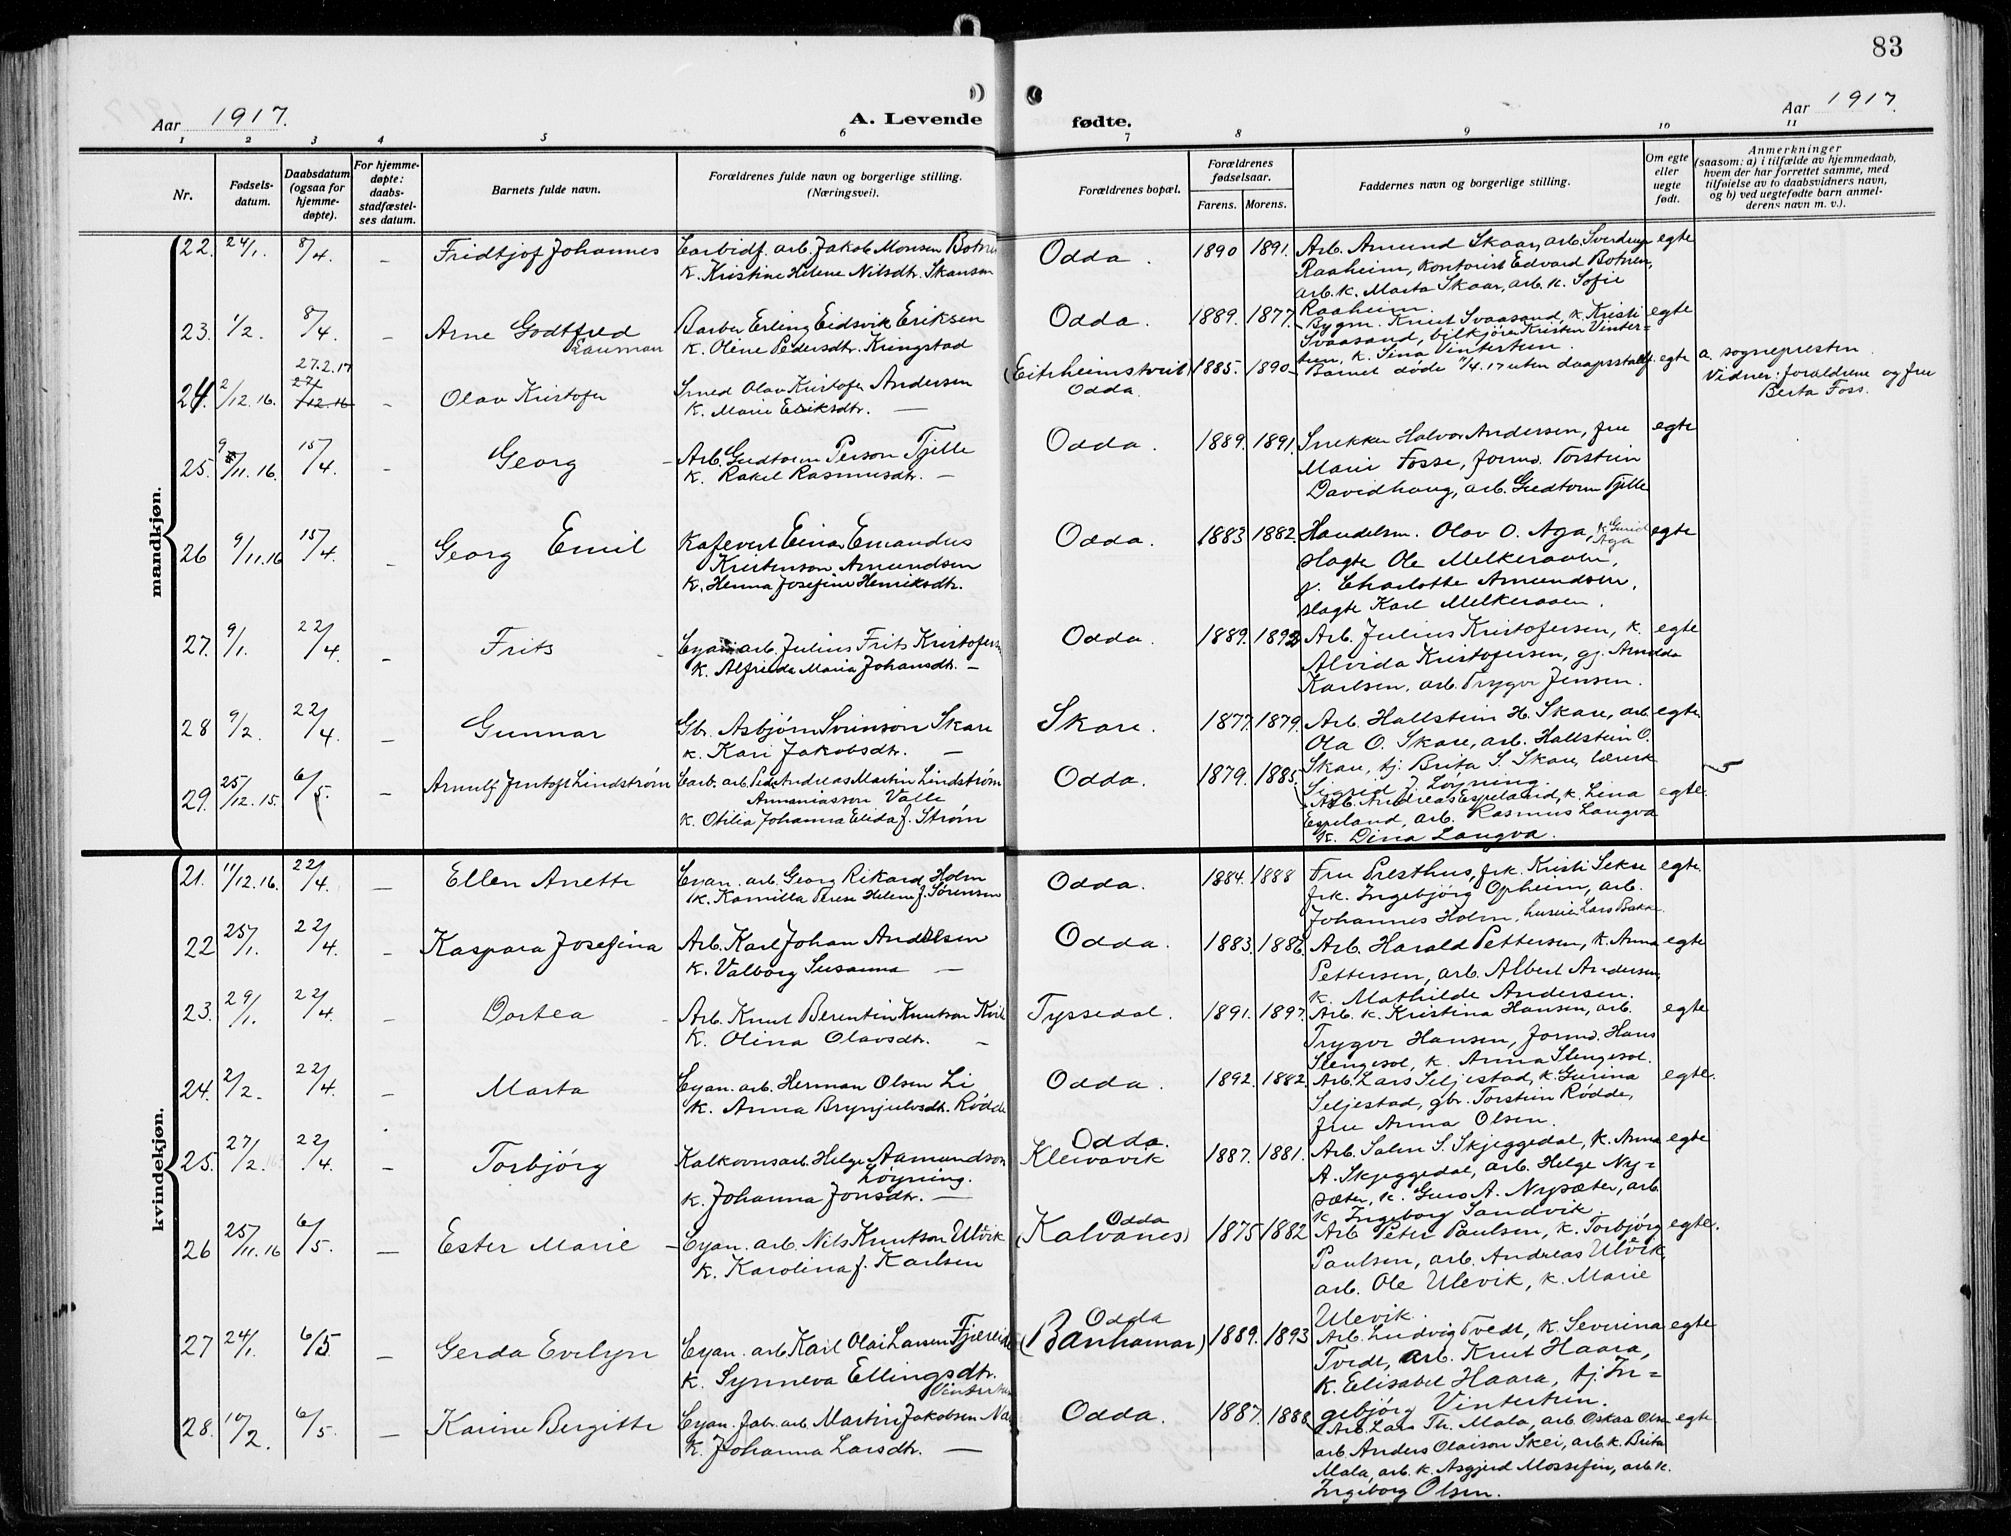 83
Aar 1917.
A. Levende fødte.
Aar 1917.
1 2 3 4 5 6 7 8 9 10 11
Nr.
Fødsels-
datum.
Daabsdatum
(ogsaa for
hjemme-
døpte).
For hjemme-
døpte:
daabs-
stadfæstel-
ses datum.
Barnets fulde navn.
Forældrenes fulde navn og borgerlige stilling.
(Næringsvei).
Forældrenes bopæl.
Forældrenes
fødselsaar.
Farens. Morens.
Faddernes navn og borgerlige stilling.
Om egte
eller
uegte
født.
Anmerkninger
(saasom: a) i tilfælde av hjemmedaab,
hvem der har forrettet samme, med
tilføielse av to daabsvidners navn,
og b) ved uegtefødte barn anmel-
derens navn m. v.).
mandkjøn.
22. 24/1. 8/4. – Fridtjof Johannes Carbidf. arb. Jakob Monsen Botnen Odda. 1890 1891. Arb. Amund Skaar, arb. Sverdrup egte
k. Kristine Helene Nilsdtr. Skansen Raaheim, kontorist Edvard Botnen,
arb. k. Marta Skaar, arb. k. Sofie
Raaheim.
23. 1/2. 8/4. – Arne Godtfred Barber Erling Eidsvik Eriksen Odda. 1889. 1877. Bygm. Knut Svaasand, k. Kristi egte
k. Oline Pedersdtr. Kringstad Svaasand, bilkjører Kristen Vinter=
tun, k. Sina Vintertun.
27.2.17
24. 2/12.16. Olav Kristofer Smed Olav Kristofer Andersen (Eitrheimstveit) 1885. 1890 Barnet døde 11/4.17 uten daapsstadf. egte a. sognepresten.
k. Marie Eriksdtr. — Odda. Vidner: forældrene og fru
Berta Foss.
25. 9/11.16. 15/4. – Georg Arb. Gudtorm Person Tjelle Odda. 1889. 1891. Snekker Halvor Andersen, fru egte
k. Rakel Rasmusdtr. — Marie Fosse, formd. Torstein
Davidhaug, arb. Gudtorm Tjelle
26 9/11.16 15/4. – Georg Emil Kafevert Einar Emandus Odda. 1883 1882. Handelsm. Olav O. Aga, k. Gunid Aga egte
Kristenson Amundsen slagter Ole Melkeraaen,
k. Henna Josefine Henriksdtr. g. Charlotte Amundsen,
slagter Karl Melkeraaen.
27. 9/1. 22/4. – Frits Cyan. arb. Julius Frits Kristofersen Odda. 1889. Arb. Julius Kristofersen, k. egte
k. Alfrida Maria Johansdtr. — Alvida Kristofersen, gj. Amanda
Karlsen, arb. Trygve Jensen.
28 9/2. 22/4. – Gunnar Gbr. Asbjørn Sveinson Skare Skare. 1877. 1879. Arb. Hallstein H. Skare, arb. egte
k. Kari Jakobsdtr. — Ola O. Skare, arb. Hallstein O.
Skare, tj. Brita S. Skare, lærerk
Sigrid J. Løyning.
29. 25/12.15. 6/5. – Arnulf Lindstrøm Carb. arb. Peder Andreas Martin Lindstrøm Odda. 1879. 1885. Arb. Andreas Espeland, k. Lina egte.
Annaniassen Valle Espeland, arb. Rasmus Langva
k. Otilia Johanna Elida f. Strøm k. Dina Langva.
kvindekjøn.
21. 11/12.16. 22/4. – Ellen Anette Cyan. arb. Georg Rikard Holm Odda. 1884. 1888 Fru Presthus, frk. Kristi Sekse egte.
k. Kamilla Terese Helene f. Sørensen frk. Ingebjørg Opheim, arb.
Johannes Holm, huseier Lars Bakke.
22 25/1. 22/4. – Kaspara Josefina Arb. Karl Johan Andersen Odda. 1883. 1886. Arb. Harald Pettersen, k. Anna egte
k. Valborg Susanna — Pettersen, arb. Albert Andersen,
k. Mathilde Andersen.
23. 29/1. 22/4. – Dortea Arb. Knut Berentin Knutson Kvile Tyssedal. 1891. 1897. Arb. k. Kristina Hansen, arb. egte
k. Olina Olavsdtr. – Trygve Hansen, formd. Hans
Slengesol, k. Anna Slengesol.
24. 2/2. 22/4. – Marta Cyan. arb. Herman Olsen Li Odda. 1892. 1882. Arb. Lars Seljestad, k. Gurina egte.
k. Anna Brynjulvsdtr. Rødde Seljestad, gbr. Torstein Rødde,
fru Anna Olsen.
25. 27/2. 22/4. – Torbjørg Kalkovnsarb. Helge Aamundson Odda. 1887. 1881. Arb. Salm. S. Skjeggedal, k. Anna egte
Løyning. Kleivavik A. Skjeggedal, arb. Helge Ny=
k. Johanna Jonsdtr. — sæter, k. Guro A. Nysæter, arb.
k. Ingeborg Sandvik.
26 25/11.16 6/5. – Ester Marie – Cyan. arb. Nils Knutson Ulvik Odda (Kalvanes) 1875 1882 Arb. Peter Paulsen, k. Torbjørg egte.
k. Karolina f. Karlsen Paulsen, arb. Andreas Ulvik,
arb. Ole Ulevik, k. Marie
Ulevik.
27 24/1. 6/5. – Gerda Evelyn Cyan. arb. Karl Olai Larsen Odda (Banhamar) 1889. 1893 Arb. Ludvig Tvedt, k. Severina egte
k. Synneva Ellingsdtr. Tvedt, arb. Knut Haara,
Vintertun k. Elisabet Haara, tj. In=
gebjørg Vintertun.
28. 10/2. 6/5. – Karine Bergitte Cyan. fabr. arb. Martin Jakobsen Odda. 1887. 1888 Arb. Lars Th. Mala, arb. Oskar Olsen egte
k. Johanna Larsdtr. — arb. Anders Olaison Skei, arb. k. Brita
Mala, arb. k. Asgjerd Mossefin, arb. k.
Ingeborg Olsen.